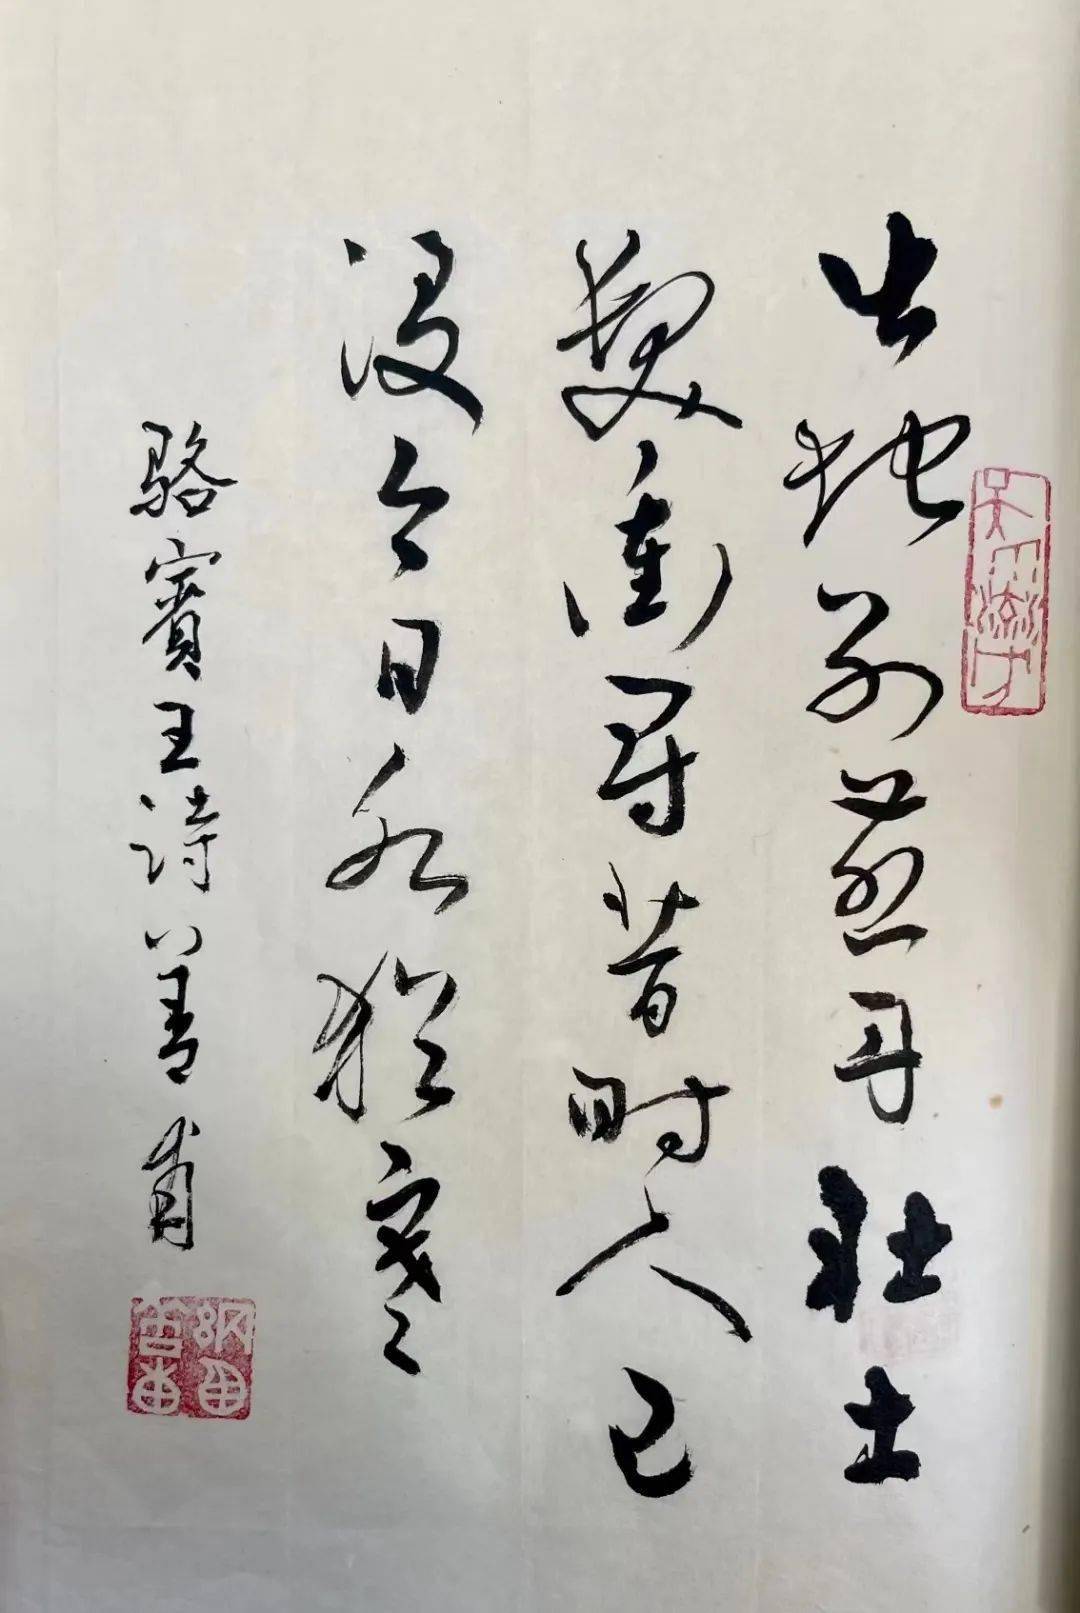 此地别燕丹壮士
髮衝冠昔时人已
没今日水猶寒
駱賓王詩善甫